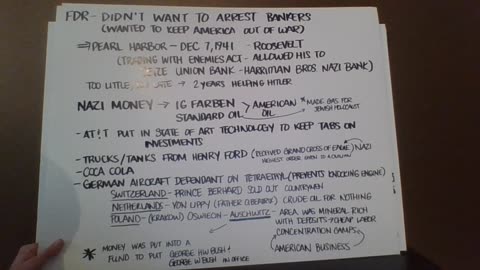 FDR- DIDN'T WANT TO ARREST BANKERS
(WANTED TO KEEP AMERICA OUT OF WAR)
⇒ PEARL HARBOR - DEC 7, 1941 - ROOSEVELT
(TRADING WITH ENEMIES ACT - ALLOWED HIS TO
SEIZE UNION BANK - HARRIMAN BROS. NAZI BANK)
TOO LITTLE, LATE → 2 YEARS HELPING HITLER
NAZI MONEY → IG FARBEN > AMERICAN OIL * MADE GAS FOR
STANDARD OIL JEWISH HOLOCAUST
- AT&T PUT IN STATE OF ART TECHNOLOGY TO KEEP TABS ON
INVESTMENTS
- TRUCKS/TANKS FROM HENRY FORD (RECEIVED GRAND CROSS OF EAGLE) NAZI
HIGHEST ORDER GIVEN TO A CIVILIAN
- COCA COLA
- GERMAN AIRCRAFT DEPENDANT ON TETRAETHYL (PREVENTS KNOCKING ENGINE)
SWITZERLAND - PRINCE BERHARD SOLD OUT COUNTRYMEN
NETHERLANDS - VON LIPPY (FATHER) CRUDE OIL FOR NOTHING
POLAND - (KRAKOW) OSWIECON - AUSCHWITZ - AREA WAS MINERAL RICH
WITH DEPOSITS → CHEAP LABOR
CONCENTRATION CAMPS
AMERICAN BUSINESS
* MONEY WAS PUT INTO A
FUND TO PUT GEORGE H W BUSH +
GEORGE W BUSH IN OFFICE